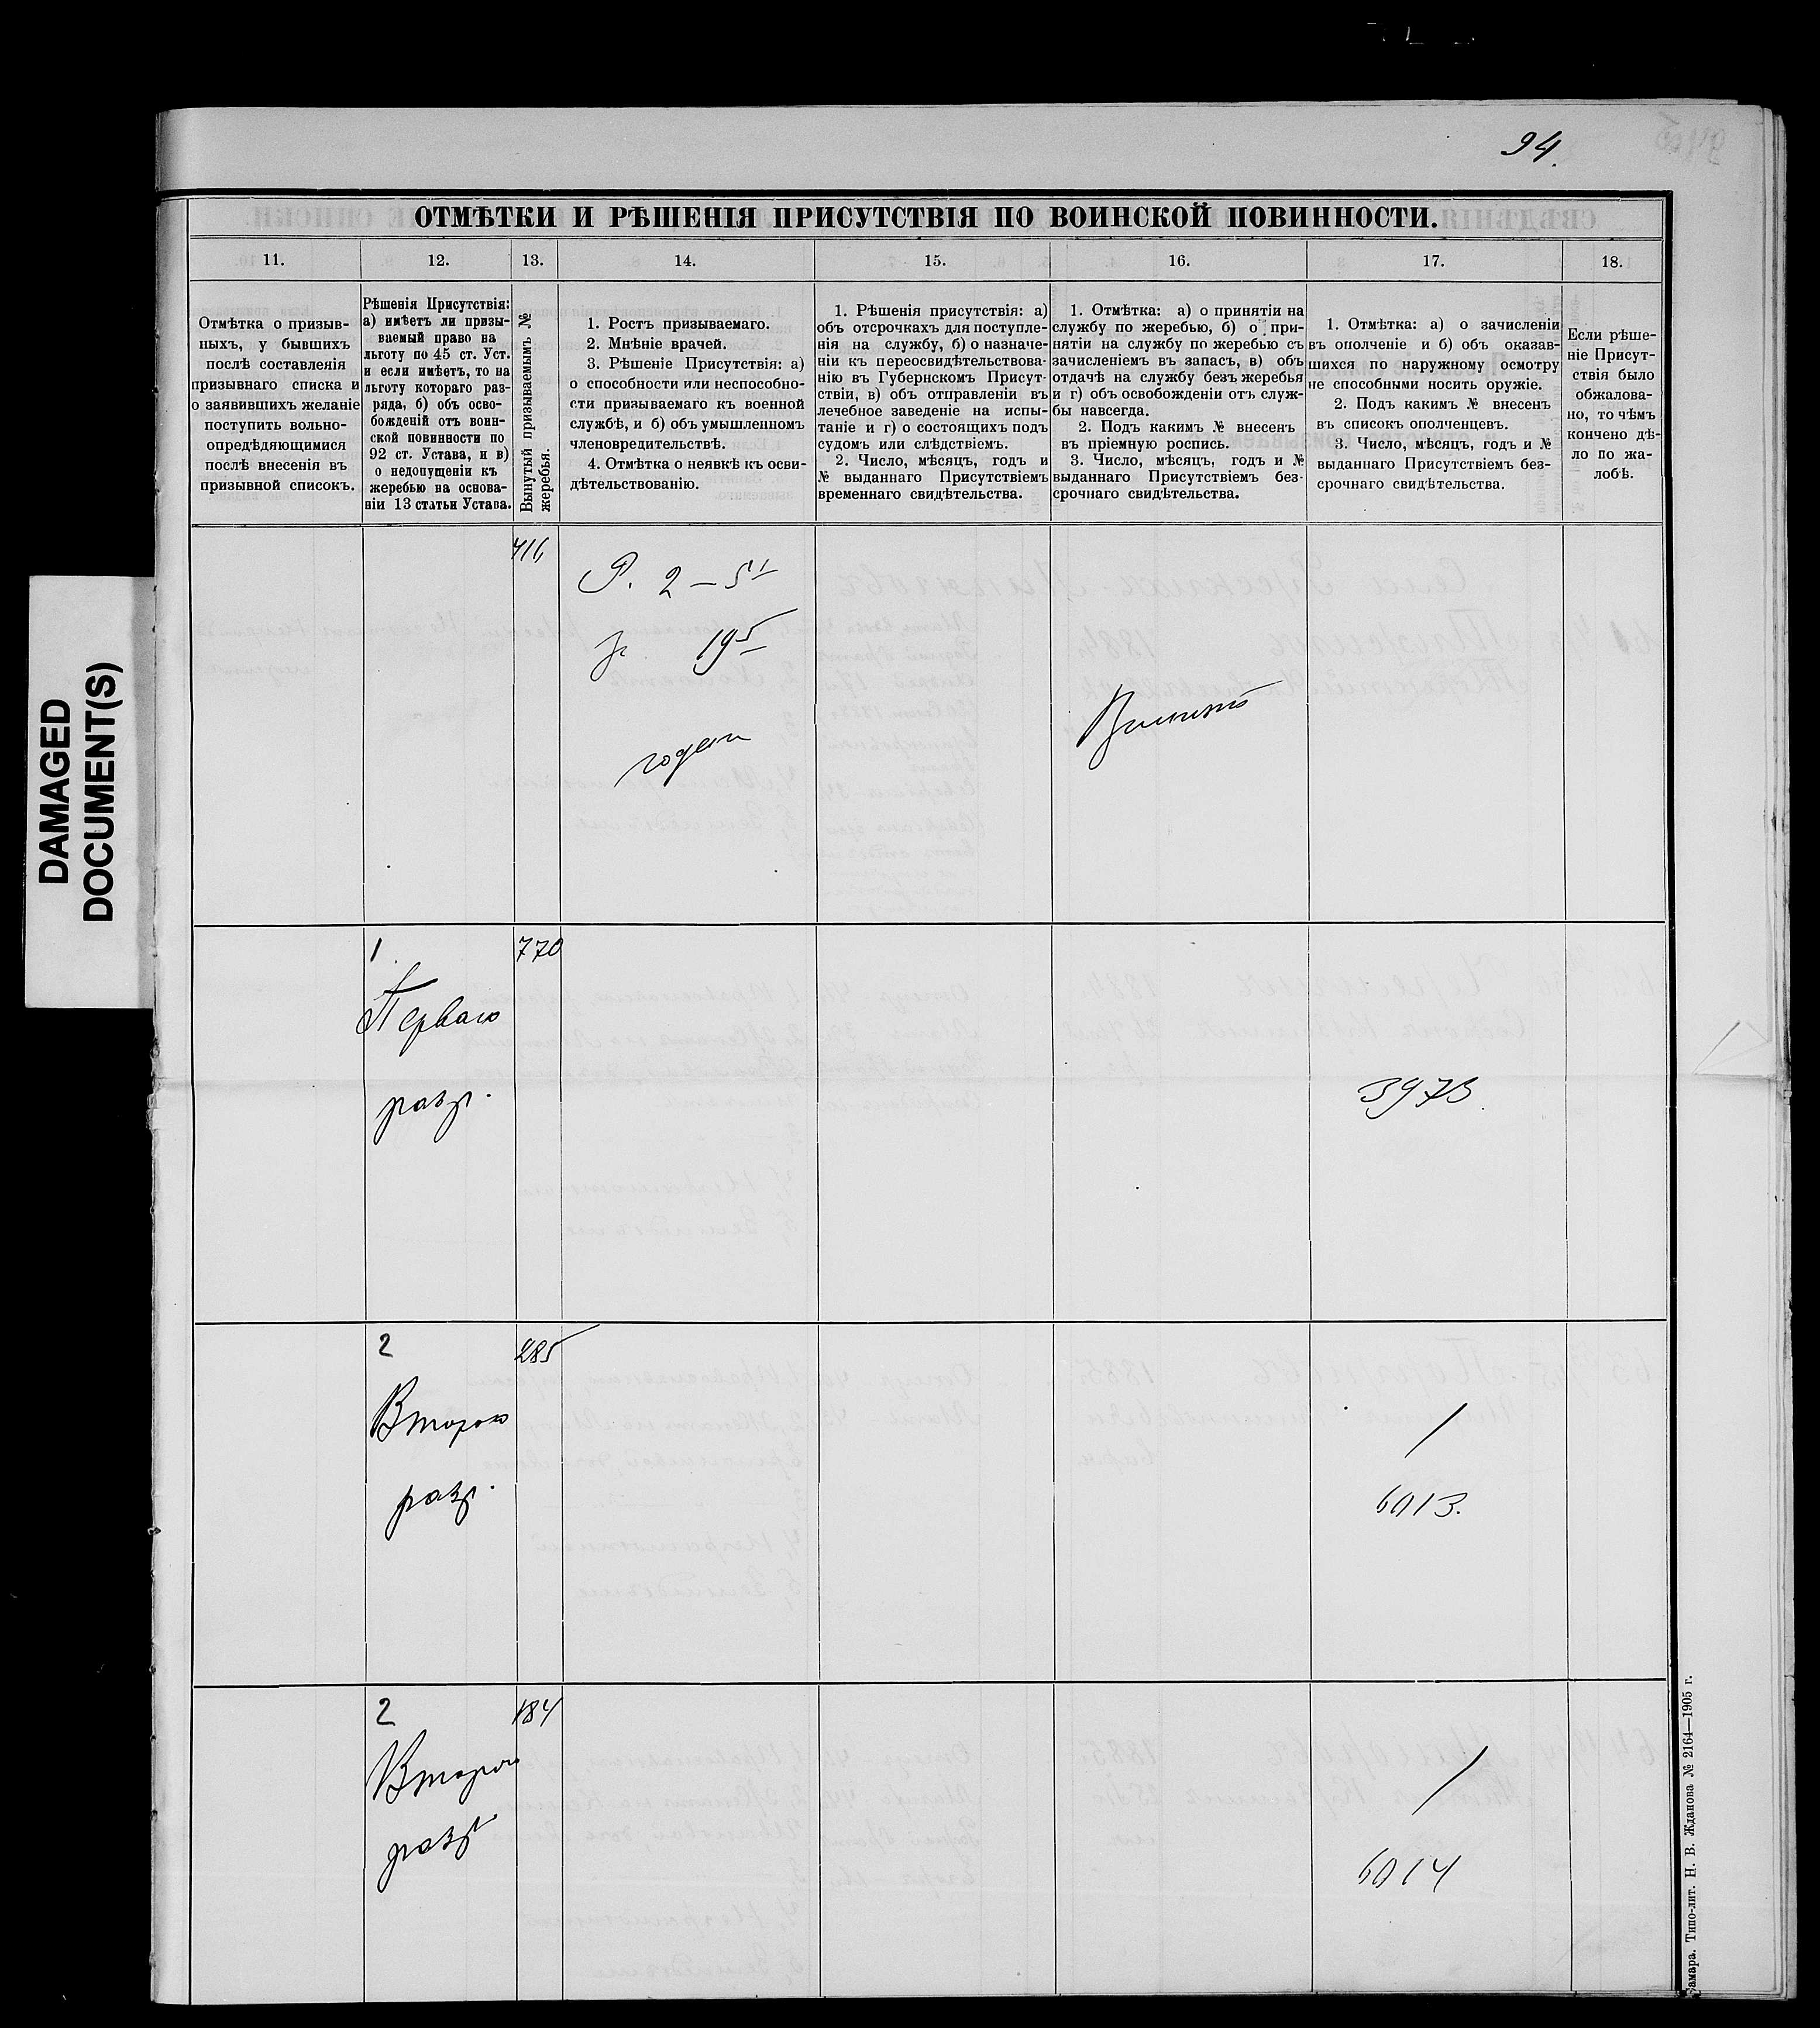 94.
ОТМѢТКИ И РѢШЕНІЯ ПРИСУТСТВІЯ ПО ВОИНСКОЙ ПОВИННОСТИ.
11.
12.
13.
14.
15.
16.
17.
18.
Отмѣтка о призыв-
ныхъ, у бывшихъ
послѣ составленія
призывнаго списка и
о заявившихъ желаніе
поступить вольно-
опредѣдяющимися
послѣ внесенія въ
призывной списокъ.
Рѣшенія Присутствія:
а) имѣетъ ли призы-
ваемый право на
льготу по 45 ст. Уст.
и если имѣетъ, то на
льготу котораго раз-
ряда, б) объ осво-
божденій отъ воин-
ской повинности по
92 ст. Устава, и в)
о недопущеніи къ
жеребью на основа-
ніи 13 статьи Устава.
Вынутый призываемымъ №
жеребья.
1. Ростъ призываемаго.
2. Мнѣніе врачей.
3. Рѣшеніе Присутствія: а)
о способности или неспособно-
сти призываемаго къ военной
службѣ, и б) объ умышленномъ
членовредительствѣ.
4. Отмѣтка о неявкѣ къ осви-
дѣтельствованію.
1. Рѣшенія присутствія: а)
объ отсрочкахъ для поступле-
нія на службу, б) о назначе-
ніи къ переосвидѣтельствова-
нію въ Губернскомъ Присут-
ствіи, в) объ отправленіи въ
лечебное заведеніе на испы-
таніе и г) о состоящихъ подъ
судомъ или слѣдствіемъ.
2. Число, мѣсяцъ, годъ и
№ выданнаго Присутствіемъ
временнаго свидѣтельства.
1. Отмѣтка: а) о принятіи на
службу по жеребью, б) о при-
нятіи на службу по жеребью съ
зачисленіемъ въ запасъ, в) объ
отдачѣ на службу безъ жеребья
и г) объ освобожденіи отъ служ-
бы навсегда.
2. Подъ какимъ № внесенъ
въ пріемную роспись.
3. Число, мѣсяцъ, годъ и №
выданнаго Присутствіемъ без-
срочнаго свидѣтельства.
1. Отмѣтка: а) о зачисленіи
въ ополченіе и б) объ оказав-
шихся по наружному осмотру
не способными носить оружіе.
2. Подъ какимъ № внесенъ
въ списокъ ополченцевъ.
3. Число, мѣсяцъ, годъ и №
выданнаго Присутствіемъ без-
срочнаго свидѣтельства.
Если рѣше-
ніе Присут-
ствія было
обжалова-
но, то чѣмъ
кончено дѣ-
ло по жа-
лобѣ.
416
Р. 2 – 5
19
годен
1
770
Перваго
разр.
3973.
2
285
Второго
разр.
6013.
2
184
Второго
разр
6014
DAMAGED
DOCUMENT(S)
Самара. Типо-лит. Н. В. Жданова № 2164—1905 г.